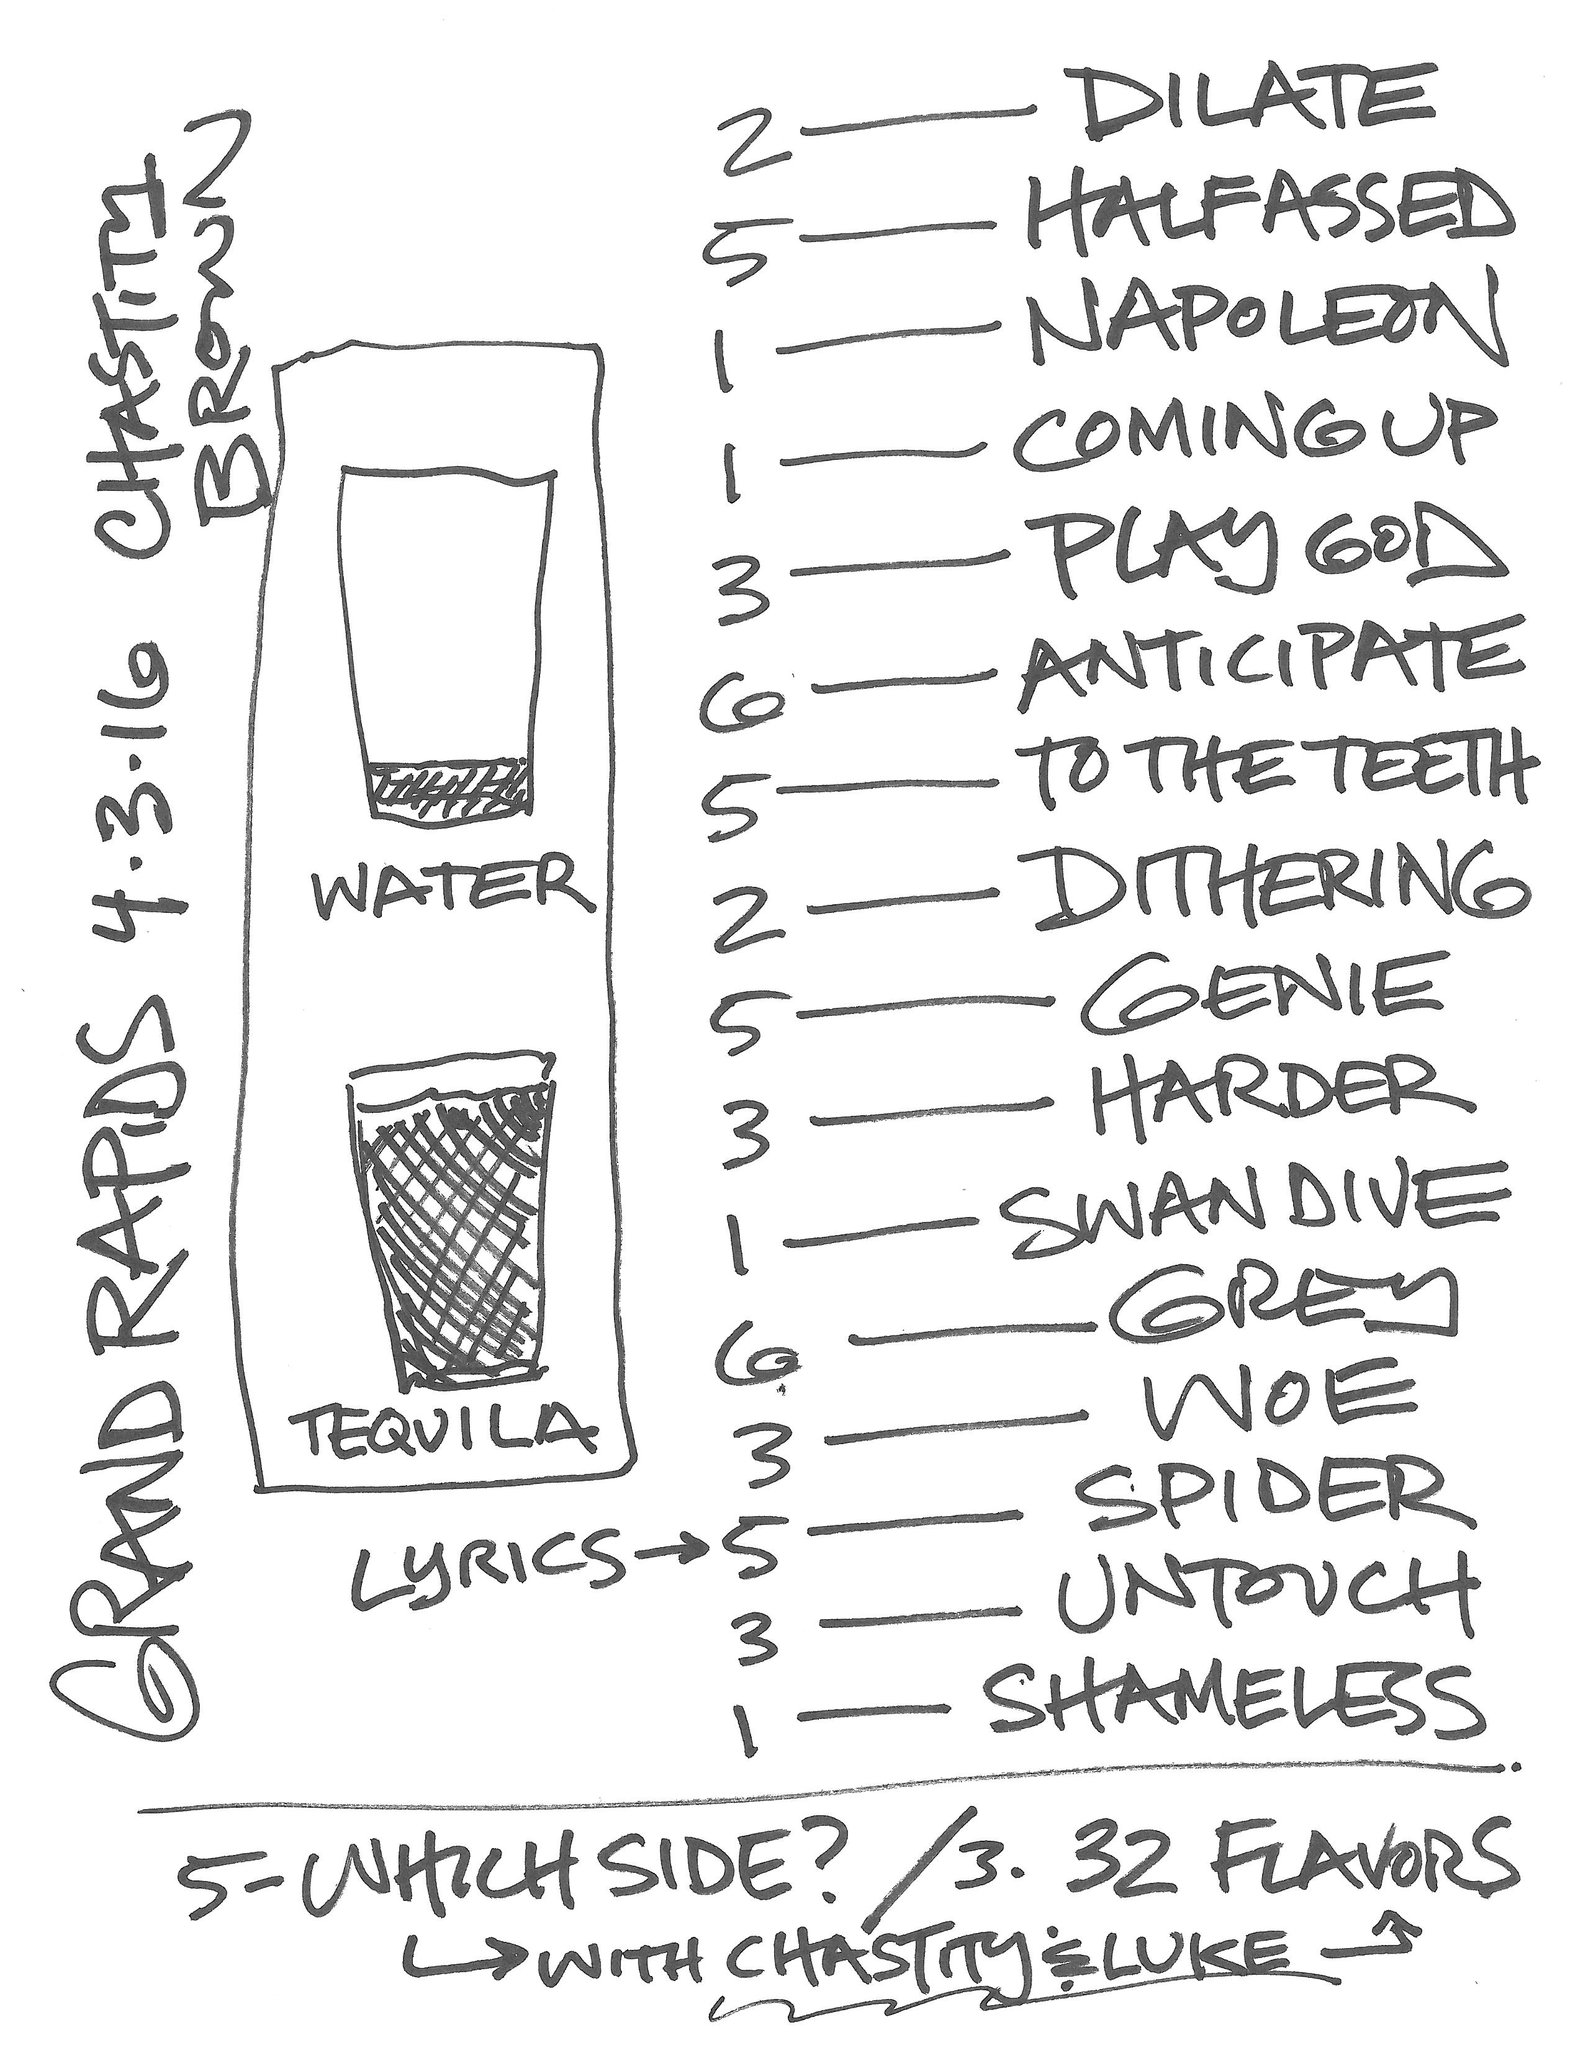 GRAND RAPIDS 4.3.16 CHASTITY BROWN
2 — DILATE
5 — HALFASSED
1 — NAPOLEON
1 — COMING UP
3 — PLAY GOD
6 — ANTICIPATE
5 — TO THE TEETH
2 — DITHERING
5 — GENIE
3 — HARDER
1 — SWANDIVE
6 — GREY
3 — WOE
LYRICS → 5 — SPIDER
3 — UNTOUCH
1 — SHAMELESS
WATER
TEQUILA
5 - WHICH SIDE? / 3. 32 FLAVORS
↳ WITH CHASTITY & LUKE